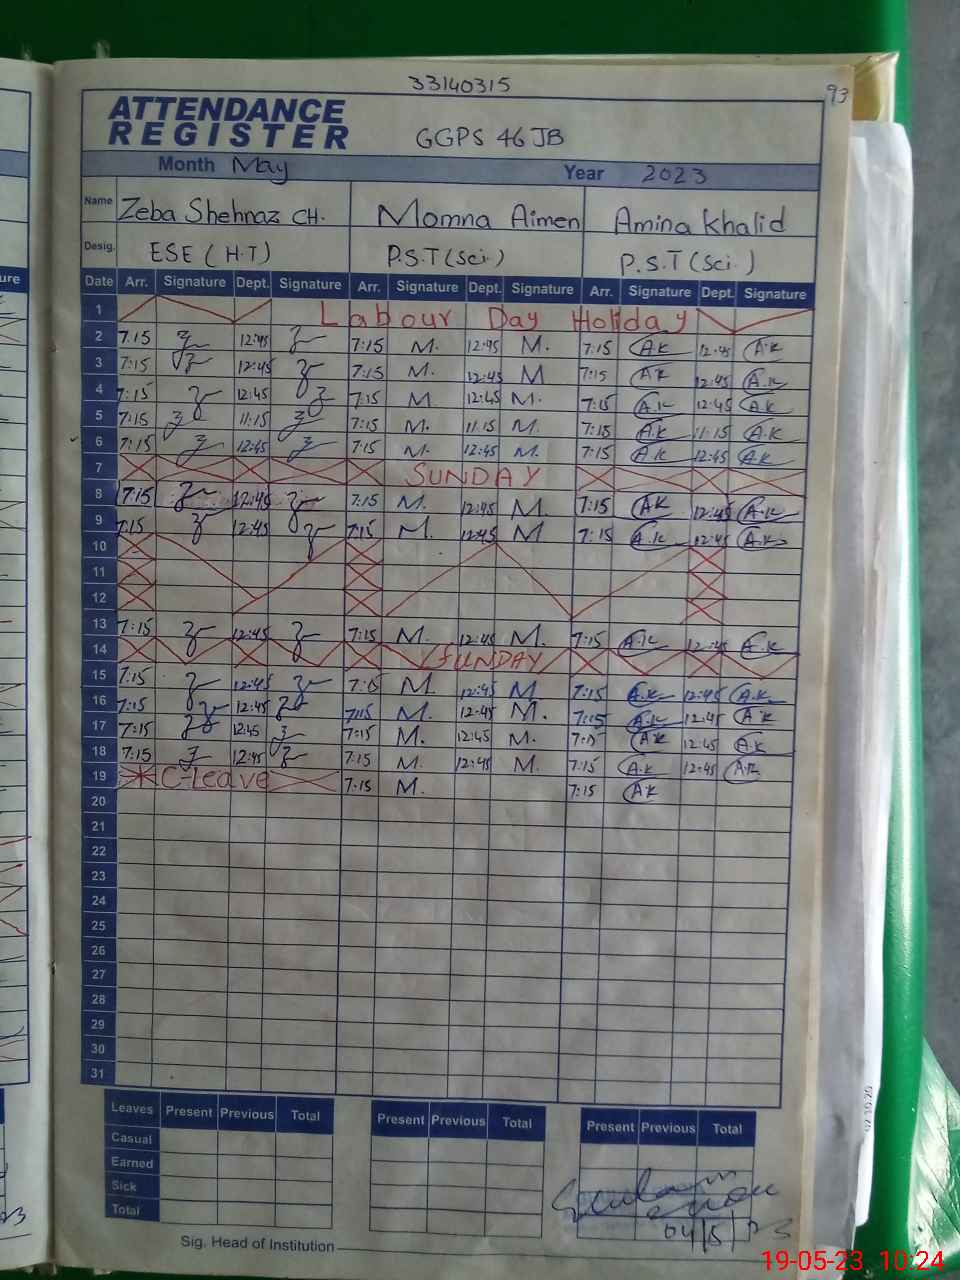 33140315
93
ATTENDANCE
REGISTER
GGPS 46 JB
Month May Year 2023
Name Zeba Shehnaz CH. Momna Aimen Amina Khalid
Desig. ESE (H.T) P.S.T (Sci.) P.S.T (Sci.)
ure
Date Arr. Signature Dept. Signature Arr. Signature Dept. Signature Arr. Signature Dept. Signature
1 Labour Day Holiday
2 7:15 12:45 7:15 M. 12:45 M. 7:15 A.K 12:45 A.K
3 7:15 12:45 7:15 M. 12:45 M 7:15 A.K 12:45 A.K
4 7:15 12:45 7:15 M. 12:45 M. 7:15 A.K 12:45 A.K
5 7:15 11:15 7:15 M. 11:15 M. 7:15 A.K 11:15 A.K
6 7:15 12:45 7:15 M. 12:45 M. 7:15 A.K 12:45 A.K
7 SUNDAY
8 7:15 12:45 7:15 M. 12:45 M. 7:15 A.K 12:45 A.K
9 7:15 12:45 7:15 M. 12:45 M 7:15 A.K 12:45 A.K
10
11
12
13 7:15 12:45 7:15 M. 12:45 M. 7:15 A.K 12:45 A.K
14 SUNDAY
15 7:15 12:45 7:15 M. 12:45 M 7:15 A.K 12:45 A.K
16 7:15 12:45 7:15 M. 12:45 M. 7:15 A.K 12:45 A.K
17 7:15 12:45 7:15 M. 12:45 M. 7:15 A.K 12:45 A.K
18 7:15 12:45 7:15 M. 12:45 M. 7:15 A.K 12:45 A.K
19 C-Leave 7:15 M. 7:15 A.K
20
21
22
23
24
25
26
27
28
29
30
31
Leaves Present Previous Total Present Previous Total Present Previous Total
Casual
Earned
Sick
Total
04/5/23
Sig. Head of Institution
19-05-23 10:24